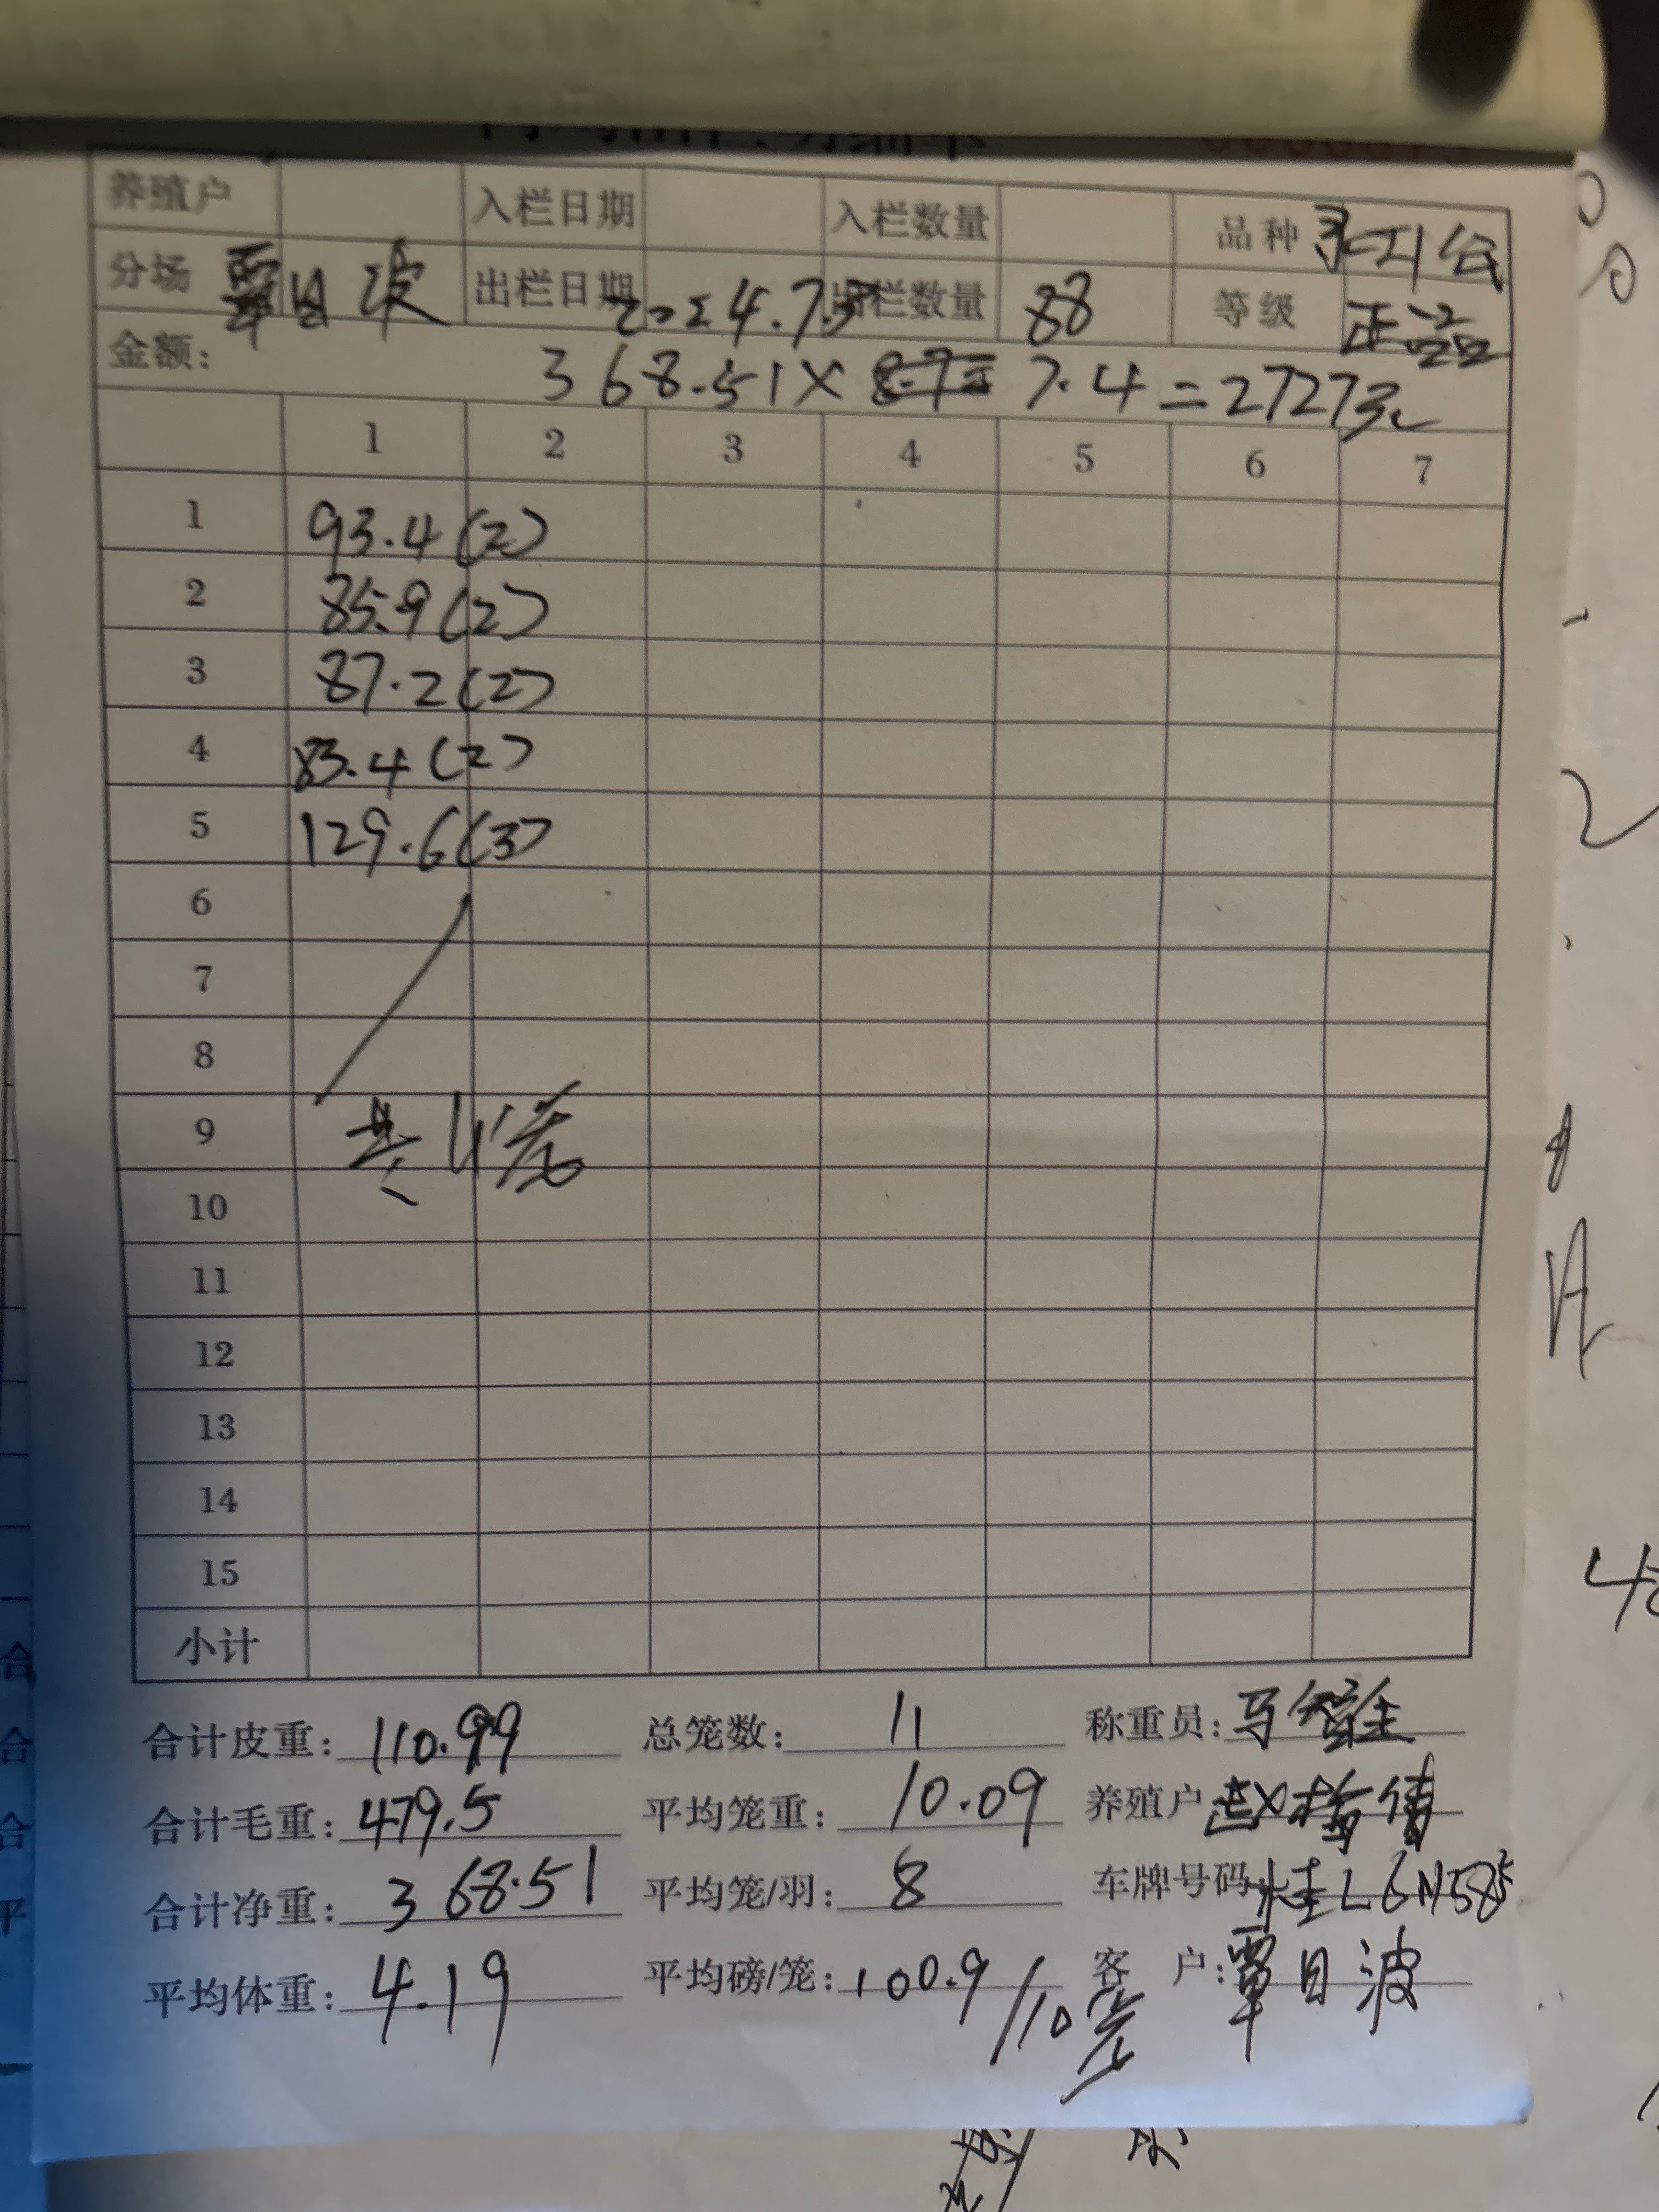 养殖户 入栏日期 入栏数量 品种 灵山公
分场 覃日波 出栏日期 2024.7.5 出栏数量 88 等级 正品
金额: 368.51× 7.4=2727元
1 2 3 4 5 6 7
1 93.4(2)
2 85.9(2)
3 87.2(2)
4 83.4(2)
5 129.6(3)
6
7
8
9 共11笼
10
11
12
13
14
15
小计
合计皮重: 110.99 总笼数: 11 称重员:
合计毛重: 479.5 平均笼重: 10.09 养殖户
合计净重: 368.51 平均笼/羽: 8 车牌号码: 桂L6M585
平均体重: 4.19 平均磅/笼: 100.9/10笼 客户: 覃日波